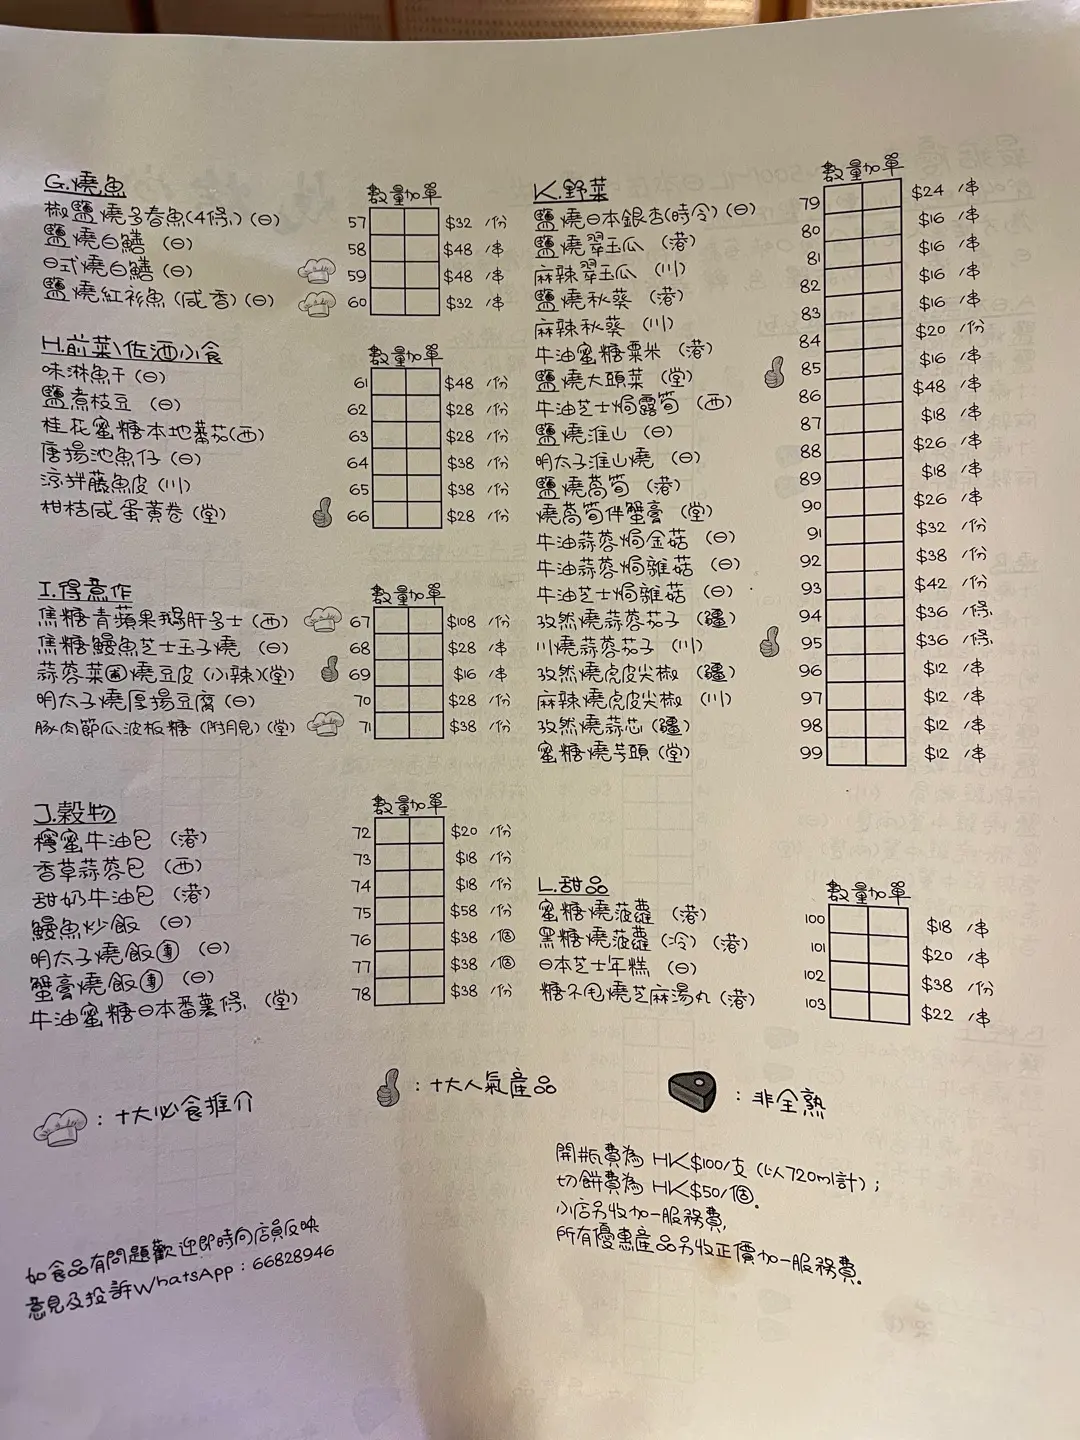 G.燒魚 數量加單
椒鹽燒多春魚(4條)(日) 57 $32 /份
鹽燒白鱔 (日) 58 $48 /串
日式燒白鱔 (日) 59 $48 /串
鹽燒紅衫魚 (咸香)(日) 60 $32 /串
H.前菜\佐酒小食 數量加單
味淋魚干 (日) 61 $48 /份
鹽煮枝豆 (日) 62 $28 /份
桂花蜜糖本地蕃茄(西) 63 $28 /份
唐揚池魚仔 (日) 64 $38 /份
涼拌藤魚皮 (川) 65 $38 /份
柑桔咸蛋黃卷 (堂) 66 $28 /份
I.得意作 數量加單
焦糖青蘋果鵝肝多士 (西) 67 $108 /份
焦糖鰻魚芝士玉子燒 (日) 68 $28 /串
蒜蓉菜圃燒豆皮 (小辣)(堂) 69 $16 /串
明太子燒厚揚豆腐 (日) 70 $28 /份
豚肉節瓜波板糖 (附月見) (堂) 71 $38 /份
J.穀物 數量加單
檸蜜牛油包 (港) 72 $20 /份
香草蒜蓉包 (西) 73 $18 /份
甜奶牛油包 (港) 74 $18 /份
鰻魚炒飯 (日) 75 $58 /份
明太子燒飯團 (日) 76 $38 /個
蟹膏燒飯團 (日) 77 $38 /個
牛油蜜糖日本番薯條 (堂) 78 $38 /份
K.野菜 數量加單
鹽燒日本銀杏(時令)(日) 79 $24 /串
鹽燒翠玉瓜 (港) 80 $16 /串
麻辣翠玉瓜 (川) 81 $16 /串
鹽燒秋葵 (港) 82 $16 /串
麻辣秋葵 (川) 83 $16 /串
牛油蜜糖粟米 (港) 84 $20 /份
鹽燒大頭菜 (堂) 85 $16 /串
牛油芝士焗露筍 (西) 86 $48 /串
鹽燒淮山 (日) 87 $18 /串
明太子淮山燒 (日) 88 $26 /串
鹽燒萵筍 (港) 89 $18 /串
燒萵筍伴蟹膏 (堂) 90 $26 /串
牛油蒜蓉焗金菇 (日) 91 $32 /份
牛油蒜蓉焗雜菇 (日) 92 $38 /份
牛油芝士焗雜菇 (日) 93 $42 /份
孜然燒蒜蓉茄子 (疆) 94 $36 /條
川燒蒜蓉茄子 (川) 95 $36 /條
孜然燒虎皮尖椒 (疆) 96 $12 /串
麻辣燒虎皮尖椒 (川) 97 $12 /串
孜然燒蒜芯 (疆) 98 $12 /串
蜜糖燒芋頭 (堂) 99 $12 /串
L.甜品 數量加單
蜜糖燒菠蘿 (港) 100 $18 /串
黑糖燒菠蘿 (冷) (港) 101 $20 /串
日本芝士年糕 (日) 102 $38 /份
糖不甩燒芝麻湯丸 (港) 103 $22 /串
：十大必食推介
：十大人氣產品
：非全熟
開瓶費為 HK$100/支 (以720ml計)；
切餅費為 HK$50/個.
小店另收加一服務費,
所有優惠產品另收正價加一服務費.
如食品有問題歡迎即時向店員反映
意見及投訴WhatsApp：66828946